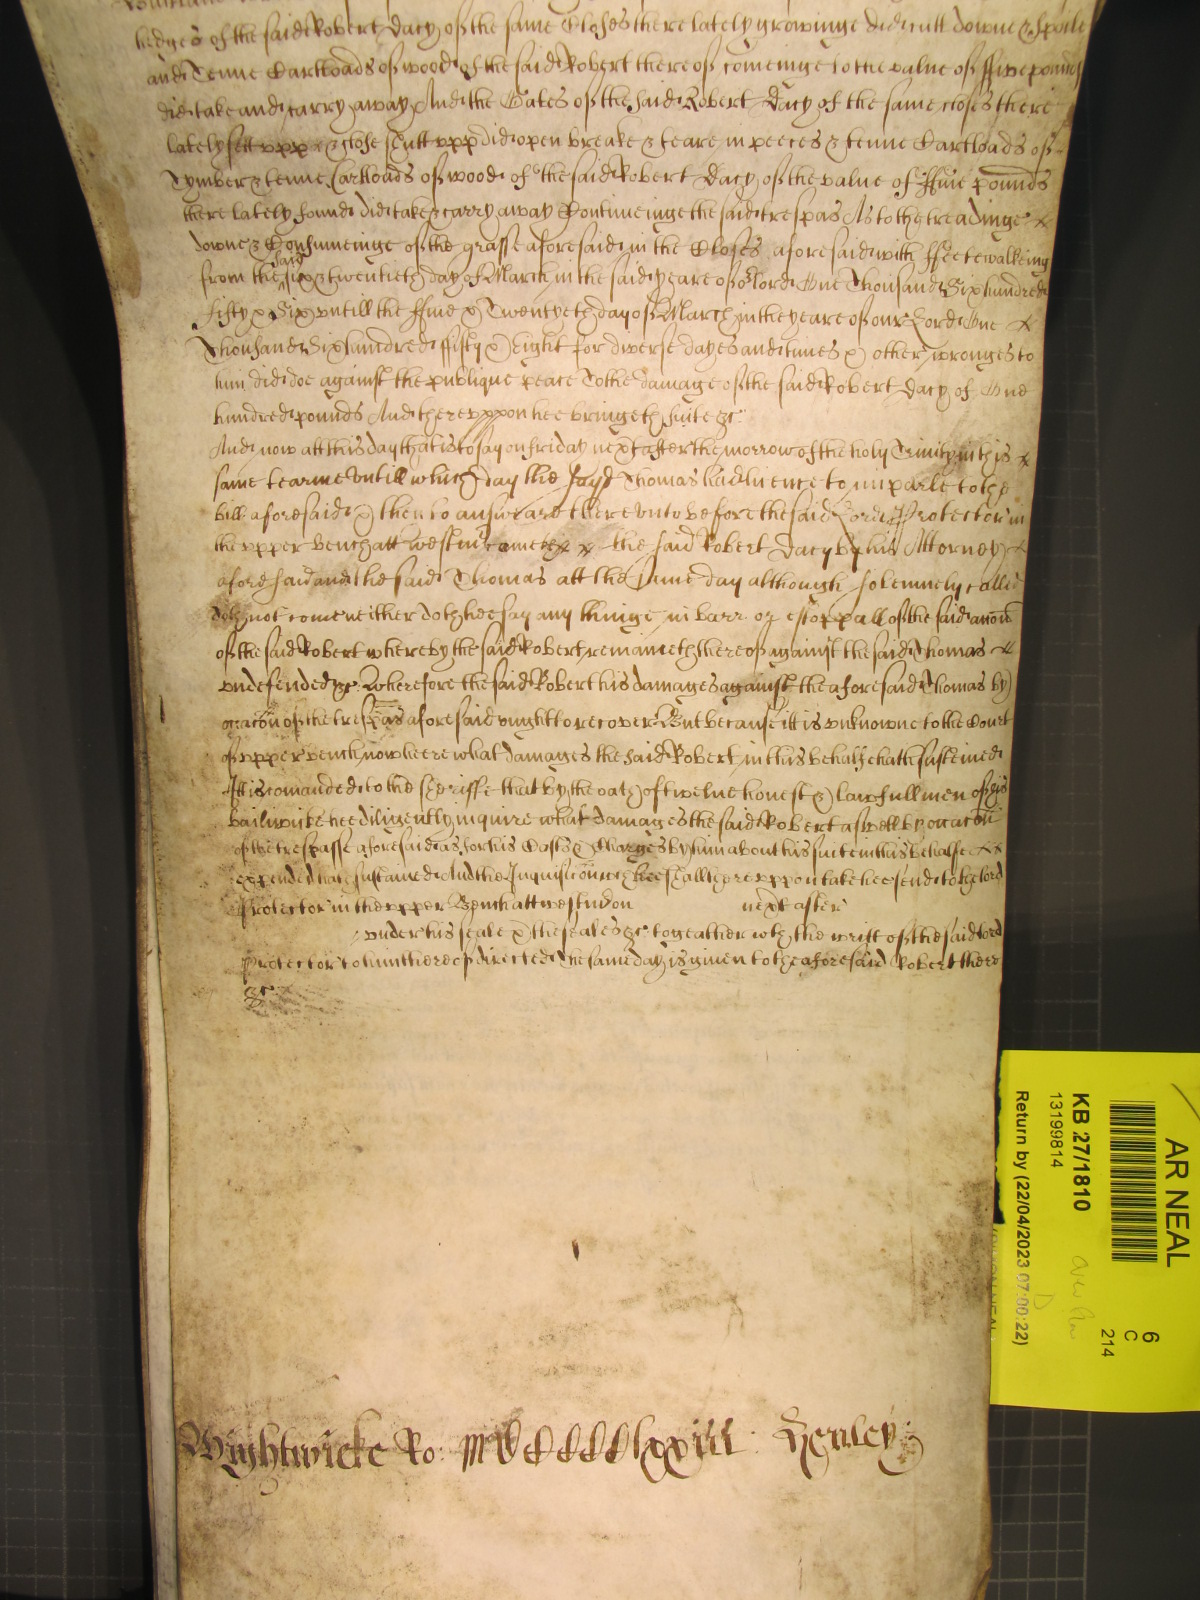 hedges of the said Robert Dacy of the same Closes there lately growinge did cutt downe & spoile
and Tenne Cartloads of wood of the said Robert thereof comeinge to the value of ffive pounds
did take and carry away And the Gates of the said Robert Dacy of the same closes there
lately sett vpp & close shutt vpp did open breake & teare in peeces & tenne Cartloads of
Tymber & tenne Cartloads of wood of the said Robert Dacy of the value of ffive pounds
there lately found did take & carry away Contineinge the said trespas As to the treadinge
downe & Consumeinge of the grasse aforesaid in the Closes aforesaid with ffeete walkeing
from the said six & twentieth day of March in the said yeare of or Lord One Thousand Six hundred
fifty & Six vntill the ffive & Twentyeth day of March in the yeare of our Lord One
Thousand Six hundred ffifty & Eight for diverse dayes and times & other wronges to
him did doe against the publique peace To the damage of the said Robert Dacy of One
hundred pounds And therevppon hee bringeth suite &c
And now att this day that is to say on friday next after the morrow of the holy Trinity in this
same tearme vntill which day the sayd Thomas had licence to imparle to the
bill aforesaid & then to answeare therevnto before the said Lord Protector in
the vpper bench att Westmr cometh the said Robert Dacy by his Attorney
aforesaid and the said Thomas att the same day although solemnely called
doth not come neither doth hee say any thinge in barr or estoppall of the said accon
of the said Robert whereby the said Robert remaineth thereof against the said Thomas
vndefended &c Wherefore the said Robert his damages against the aforesaid Thomas by
occacon of the trespas aforesaid ought to recover But because itt is vnknowne to the Court
of vpper bench now heere what damages the said Robert in this behalfe hath susteined
Itt is comanded to the sheriffe that by the oath of twelve honest & lawfull men of his
bailiwicke hee diligently inquire what damages the said Robert aswell by occacon
of the trespasse aforesaid as for his Costs & Charges by him about his suite in this behalfe
expended hath sustained And the Inquisicon wch hee shall therevppon take hee send to the lord
Protector in the vpper Bench att Westm on next after
vnder his seale & the seales &c togeather wth the writt of the said lord
Protector to him thereof directed The same day is given to the aforesaid Robert there
&c
Wightwicke Ro: Henley
AR NEAL
6
C
214
KB 27/1810
13199814
Return by (22/04/2023 07:00:22)